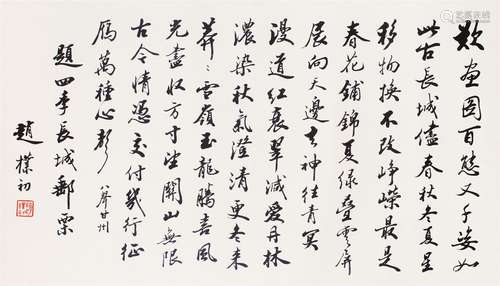 歎畫圖百態又千姿如
此古長城儘春秋冬夏星
移物換不改崢嶸最是
春花鋪錦夏綠疊雲屏
展向天邊去神往青冥
漫道紅衰翠減愛丹林
濃染秋氣澄清更冬來
莽々雪嶺玉龍騰喜風
光盡收方寸望關山無限
古今情憑交付幾行征
雁萬種心聲 八聲甘州
題四季長城郵票
趙樸初